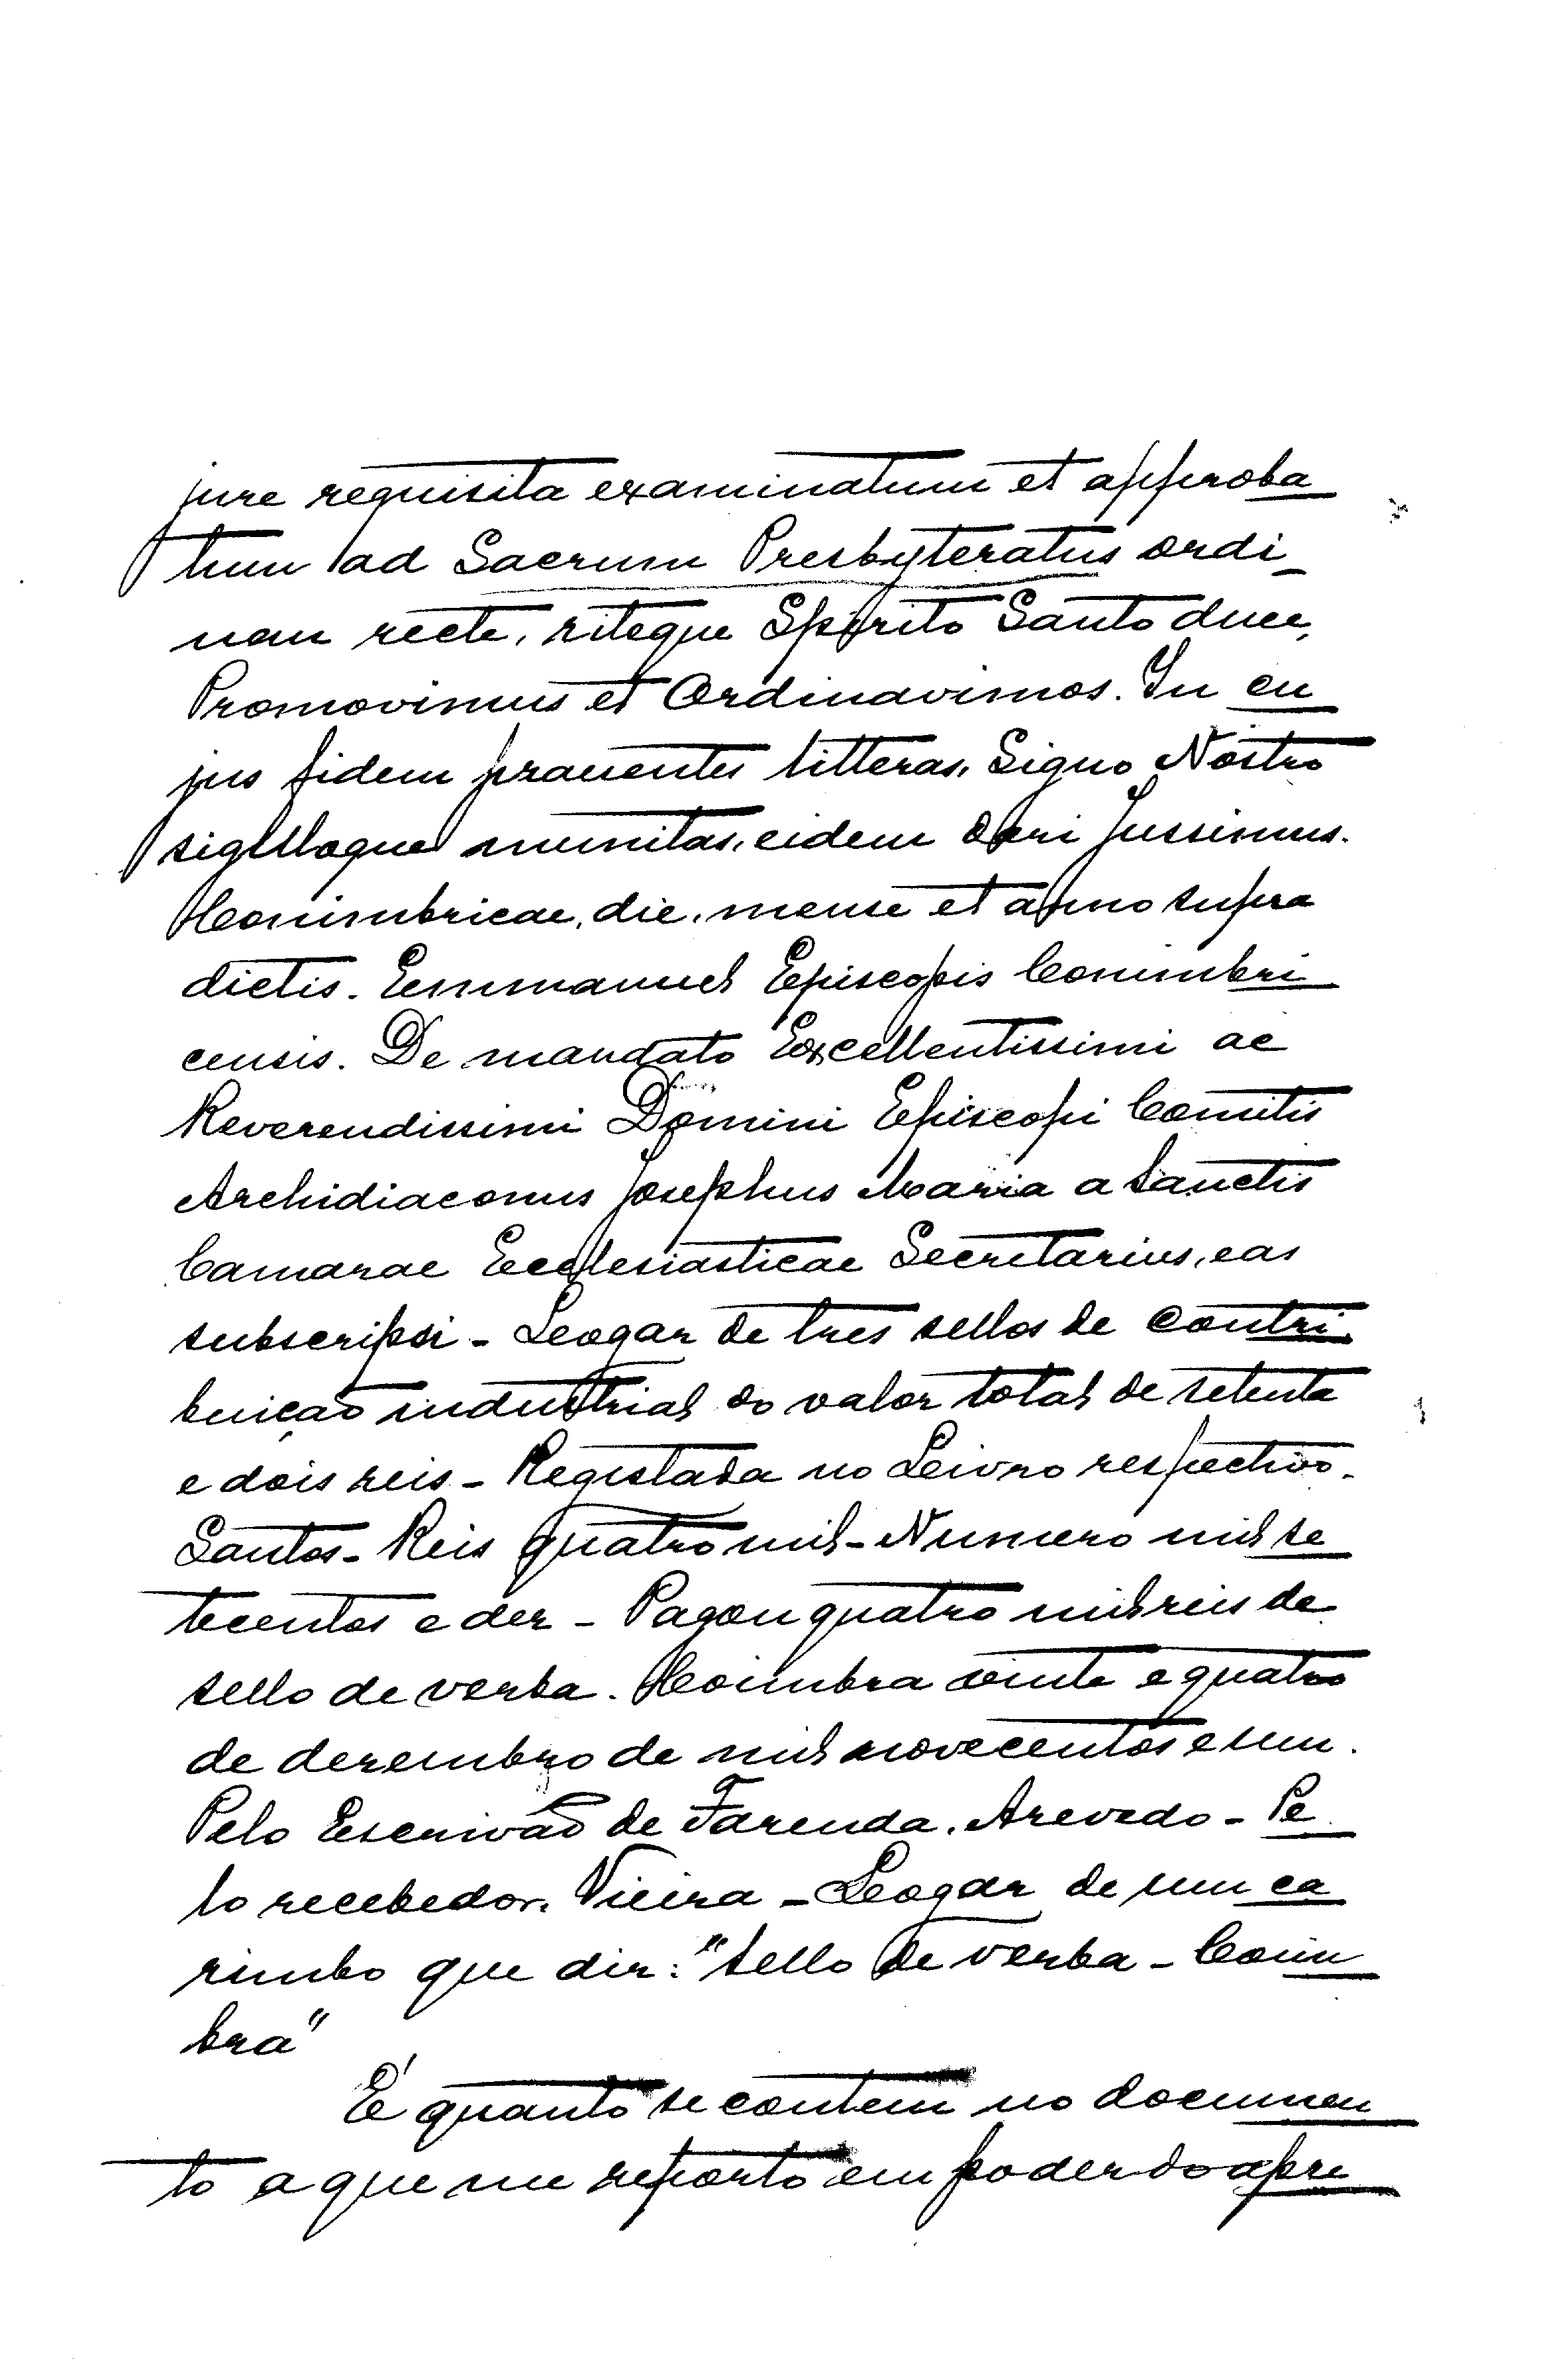 jure requisita examinatum et approba
tum ad Sacrum Presbyteratus ordi-
nem recte, riteque Spirito Santo duce,
Promovimus et Ordinavimos. In cu
jus fidem praesentes litteras, Signo Nostro
sigilloque munitas, eidem dari jussimus.
Conimbricae, die, mense et anno supra
dictis. Emmanuel Episcopis Conimbri
censis. De mandato Excellentissimi ac
Reverendissimi Domini Episcopi Comitis
Archidiaconus Josephus Maria a Sanctis
Camarae Ecclesiasticae Secretarius, eas
subscripsi - Logar de tres sellos de contri
buição industrial do valor total de setenta
e dois reis - Registada no Livro respectivo.
Santos - Reis quatro mil - Numero mil se
tecentos e dez - Pagou quatro mil reis de
sello de verba. Coimbra vinte e quatro
de dezembro de mil novecentos e um.
Pelo Escrivão de Fazenda, Azevedo - Pe
lo recebedor, Vieira - Logar de um ca
rimbo que diz: "Sello de verba - Coim
bra"
É quanto se contem no documen
to a que me reporto em poder do apre